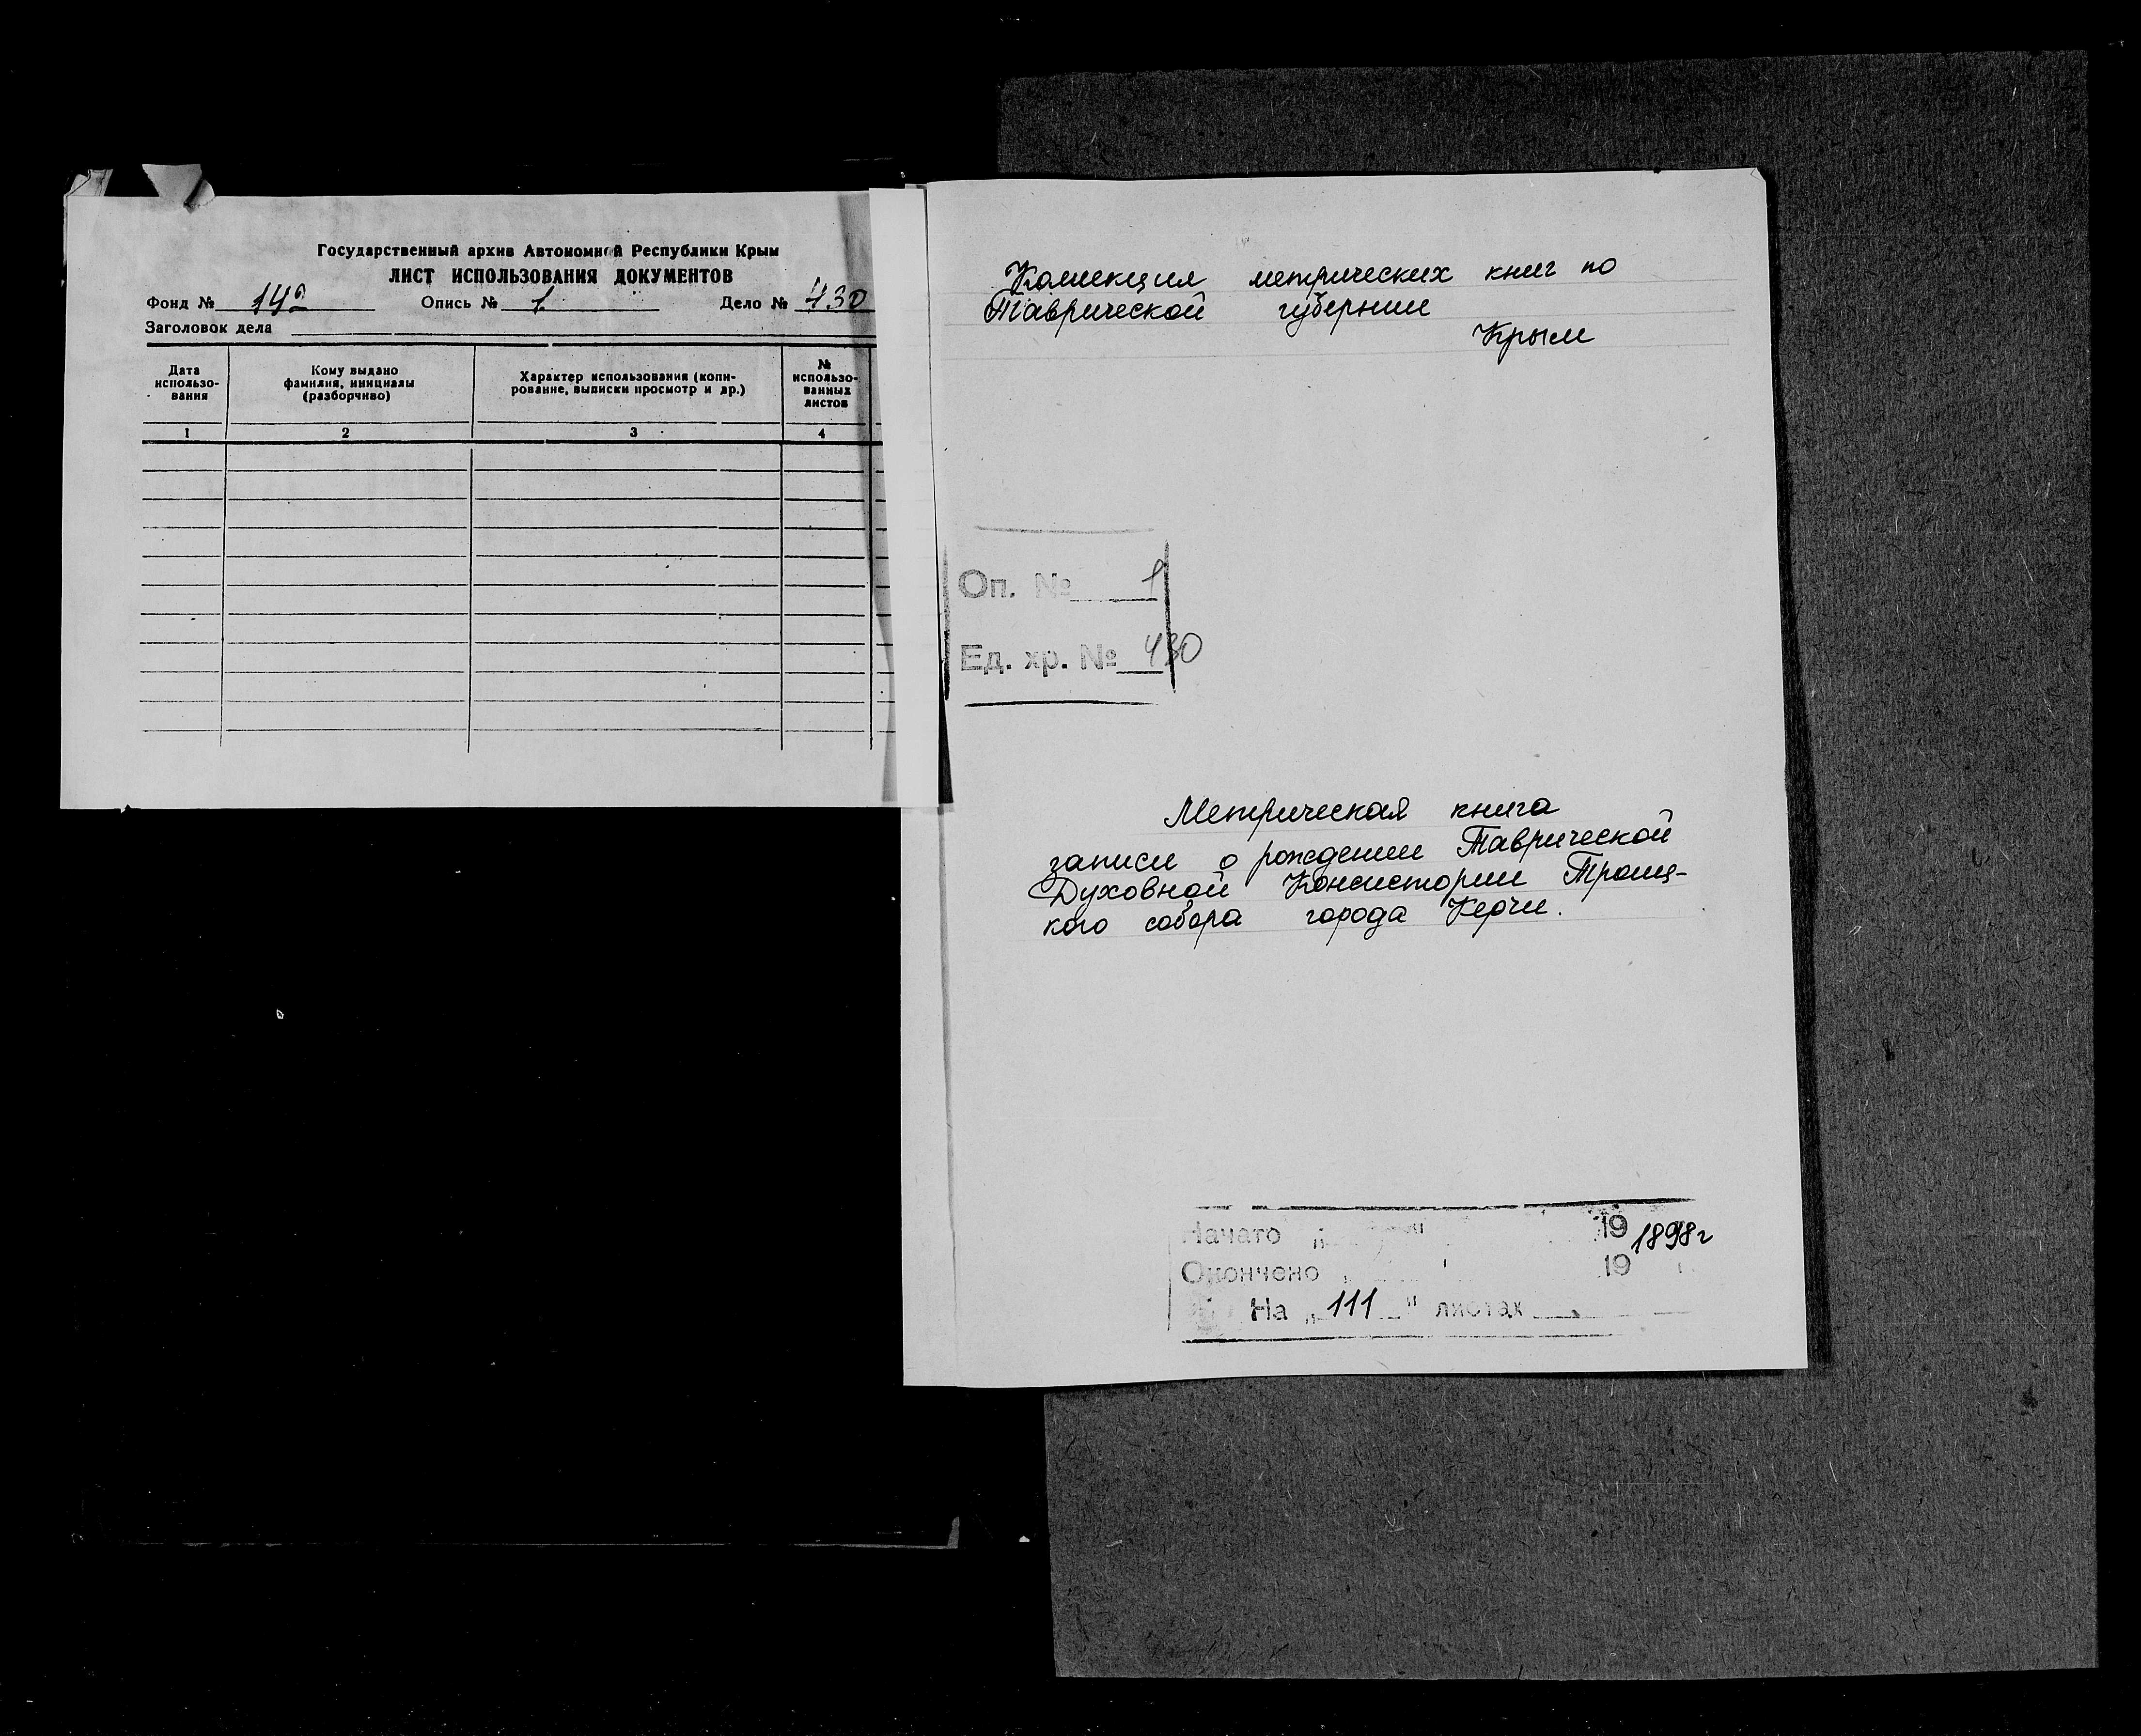 Государственный архив Автономной Республики Крым
ЛИСТ ИСПОЛЬЗОВАНИЯ ДОКУМЕНТОВ
Фонд № 142 Опись № 1 Дело № 430
Заголовок дела
Дата использо-вания
Кому выдано фамилия, инициалы (разборчиво)
Характер использования (копи-рование, выписки просмотр и др.)
№ использо-ванных листов
1 2 3 4
Коллекция метрических книг по
Таврической губернии
Крым
Оп. № 1
Ед. хр. № 430
Метрическая книга
записи о рождении Таврической
Духовной Консистории Троиц-
кого собора города Керчи.
Начато „ " 19 1898г
Окончено „ 19
На „111" листах